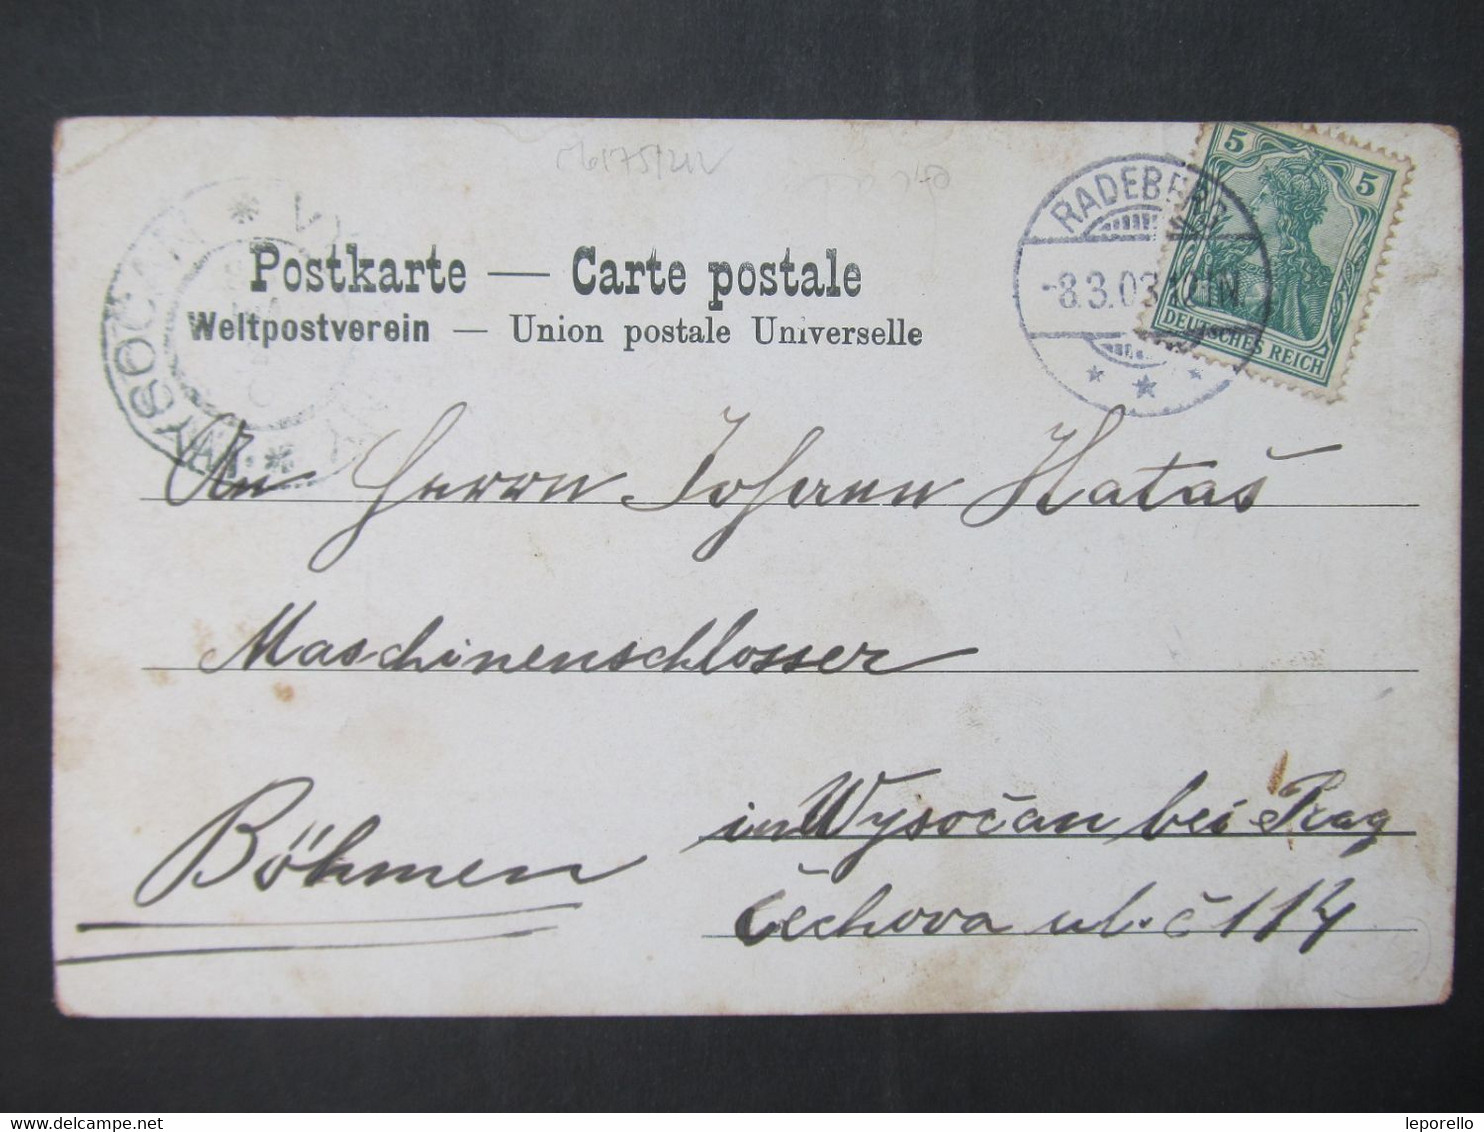 Postkarte — Carte postale
Weltpostverein — Union postale Universelle
RADEBERG
-8.3.03.
5
5
DEUTSCHES REICH
VYSOČAN
An Herrn Johann Hataš
Maschinenschlosser
in Wysočan bei Prag
Böhmen
Čechova ul. č 114
leporello